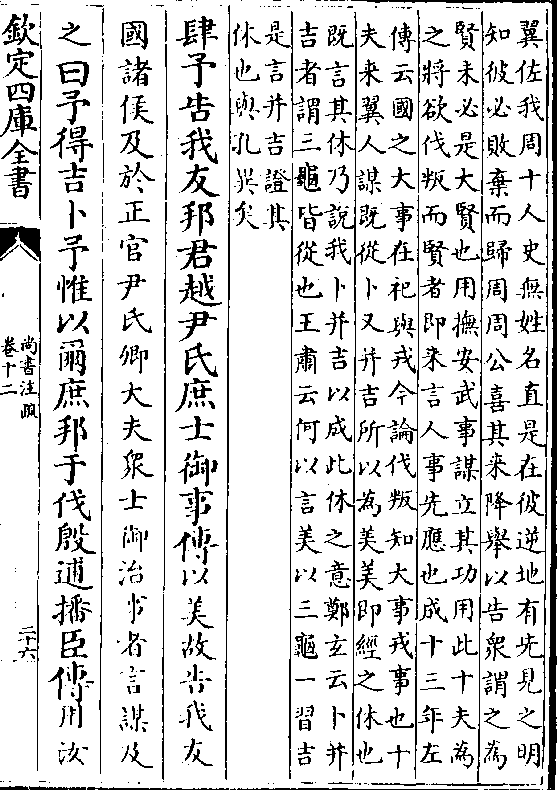 翼佐我周十人史無姓名直是在彼逆地有先見之明
知彼必敗棄而歸周周公喜其来降舉以告衆謂之為
賢未必是大賢也用撫安武事謀立其功用此十夫為
之將欲伐叛而賢者即来言人事先應也成十三年左
傳云國之大事在祀與戎今論伐叛知大事戎事也十
夫来翼人謀既從卜又并吉所以為美美即經之休也
既言其休乃説我卜并吉以成此休之意鄭𤣥云卜并
吉者謂三龜皆從也王肅云何以言美以三龜一習吉
是言并吉證其
休也與孔異矣
肆予告我友邦君越尹氏庶士御事傳以美故告我友
國諸侯及於正官尹氏卿大夫衆士御治事者言謀及
之曰予得吉卜予惟以爾庶邦于伐殷逋播臣傳用汝
欽定四庫全書
尚書注疏
卷十二
二十六